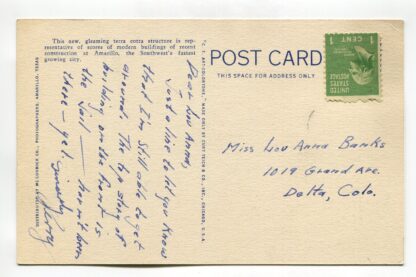 This new, gleaming terra cotta structure is rep-
resentative of scores of modern buildings of recent
construction at Amarillo, the Southwest's fastest
growing city.
POST CARD
THIS SPACE FOR ADDRESS ONLY
1 CENT 1
UNITED STATES
POSTAGE
Dear Lou Anna,
Just a line to let you know
that I'm still able to get
around. The top story of
building on the front is
the jail — haven't been
there — yet.
Sincerely
Miss Lou Anna Banks
1019 Grand Ave.
Delta, Colo.
DISTRIBUTED BY McCORMICK CO., PHOTOGRAPHERS, AMARILLO, TEXAS
C. T. ART-COLORTONE MADE ONLY BY CURT TEICH & CO., INC., CHICAGO, U.S.A.